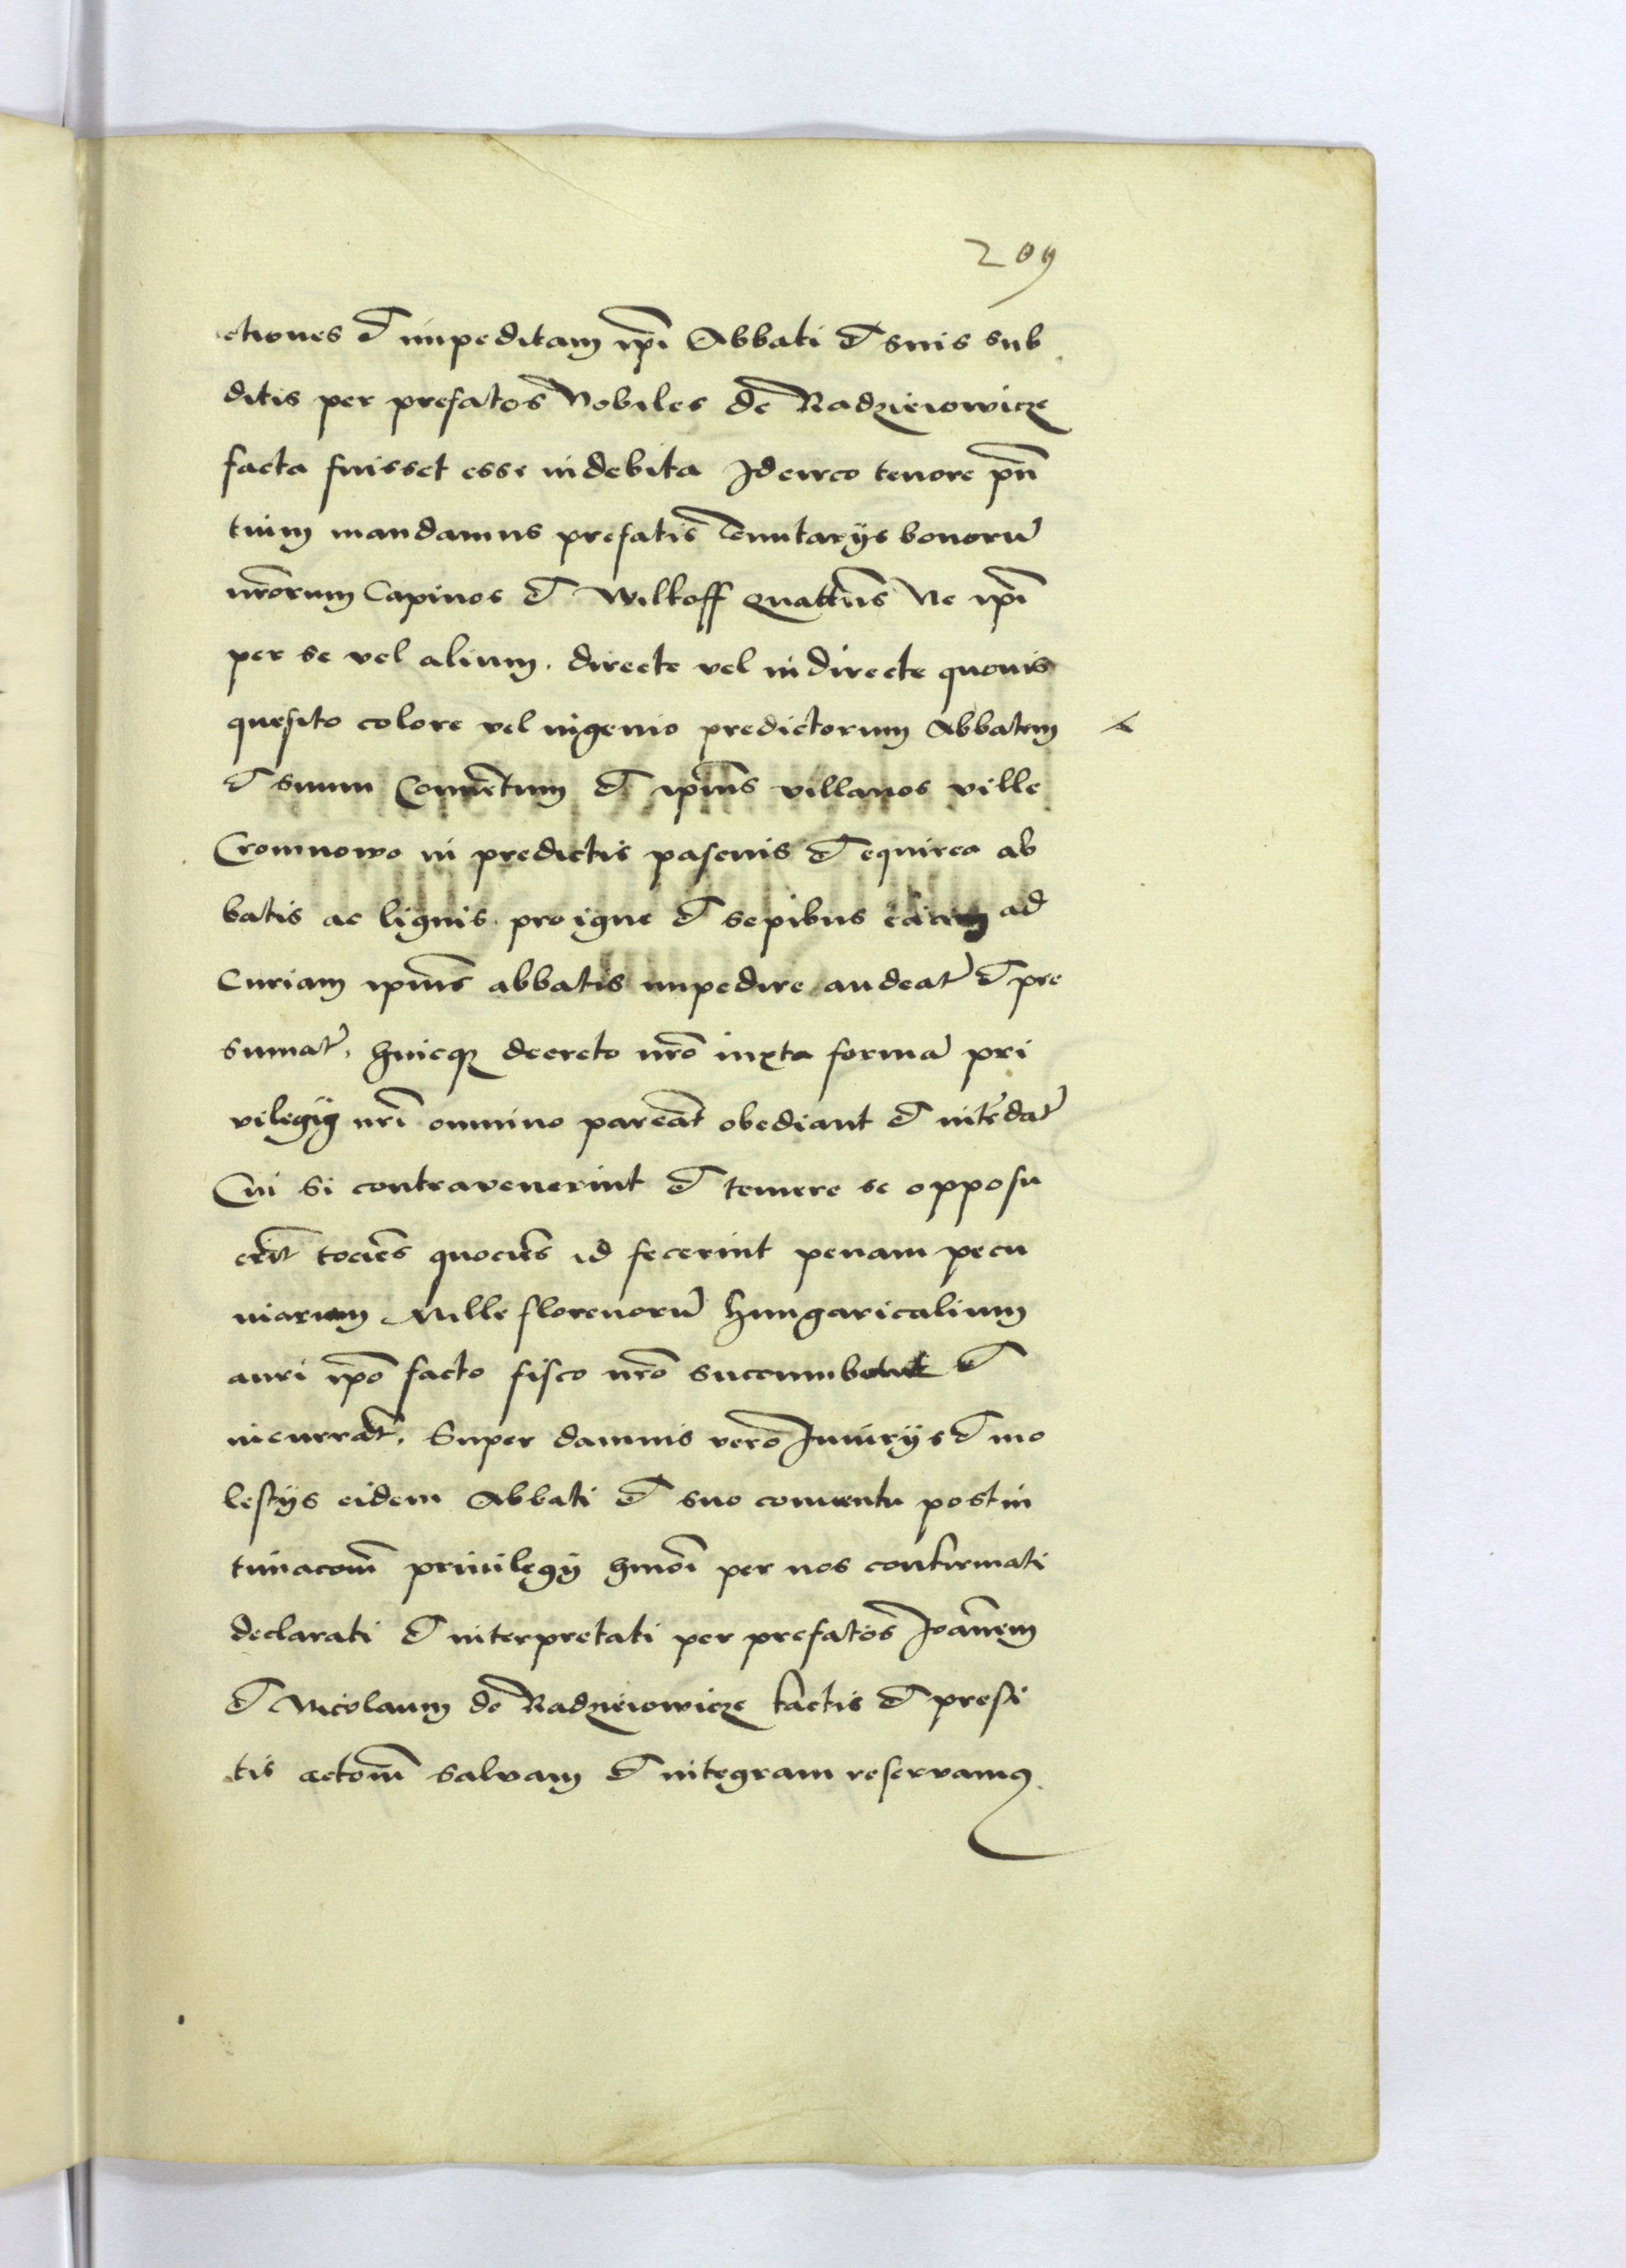 209
ctiones et impeditam ip̄i Abbati et suis sub
ditis per prefatos Nobiles de Radzieiowicze
facta fuisset esse indebita Idcirco tenore pn̄
tium mandamus prefatis Tenutarys bonorū
nr̄orum Capinos et Wilkoff quatt̄us Ne ip̄i
per se vel alium. directe vel indirecte quouis
quesito colore vel ingenio predictorum Abbatem
et suum Conuētum et ip̄ius villanos ville
Cromnowo in predictis pascuis et equirea ab
batis ac lignis. pro igne et sepibus ad
Curiam ip̄ius abbatis impedire audeāt et pre
sumāt, huicqꝫ decreto nr̄o iuxta formā pri
vilegij nr̄i omnino pareāt obediant et intēdāt
Cui si contravenerint et temere se opposu
erīt tociēs quociēs id fecerint penam pecu
niariam Mille florenorū hungaricalium
auri ip̄o facto fisco nr̄o succumbant et
incurrāt, Super damnis vero Iniurijs et mo
lestijs eidem Abbati et suo conuentu post in
timacoēm priuilegij hmōi per nos confirmati
declarati et interpretati per prefatos Ioānem
et Nicolaum de Radzieiowicze factis et presti
tis actōem salvam et integram reservamꝰ